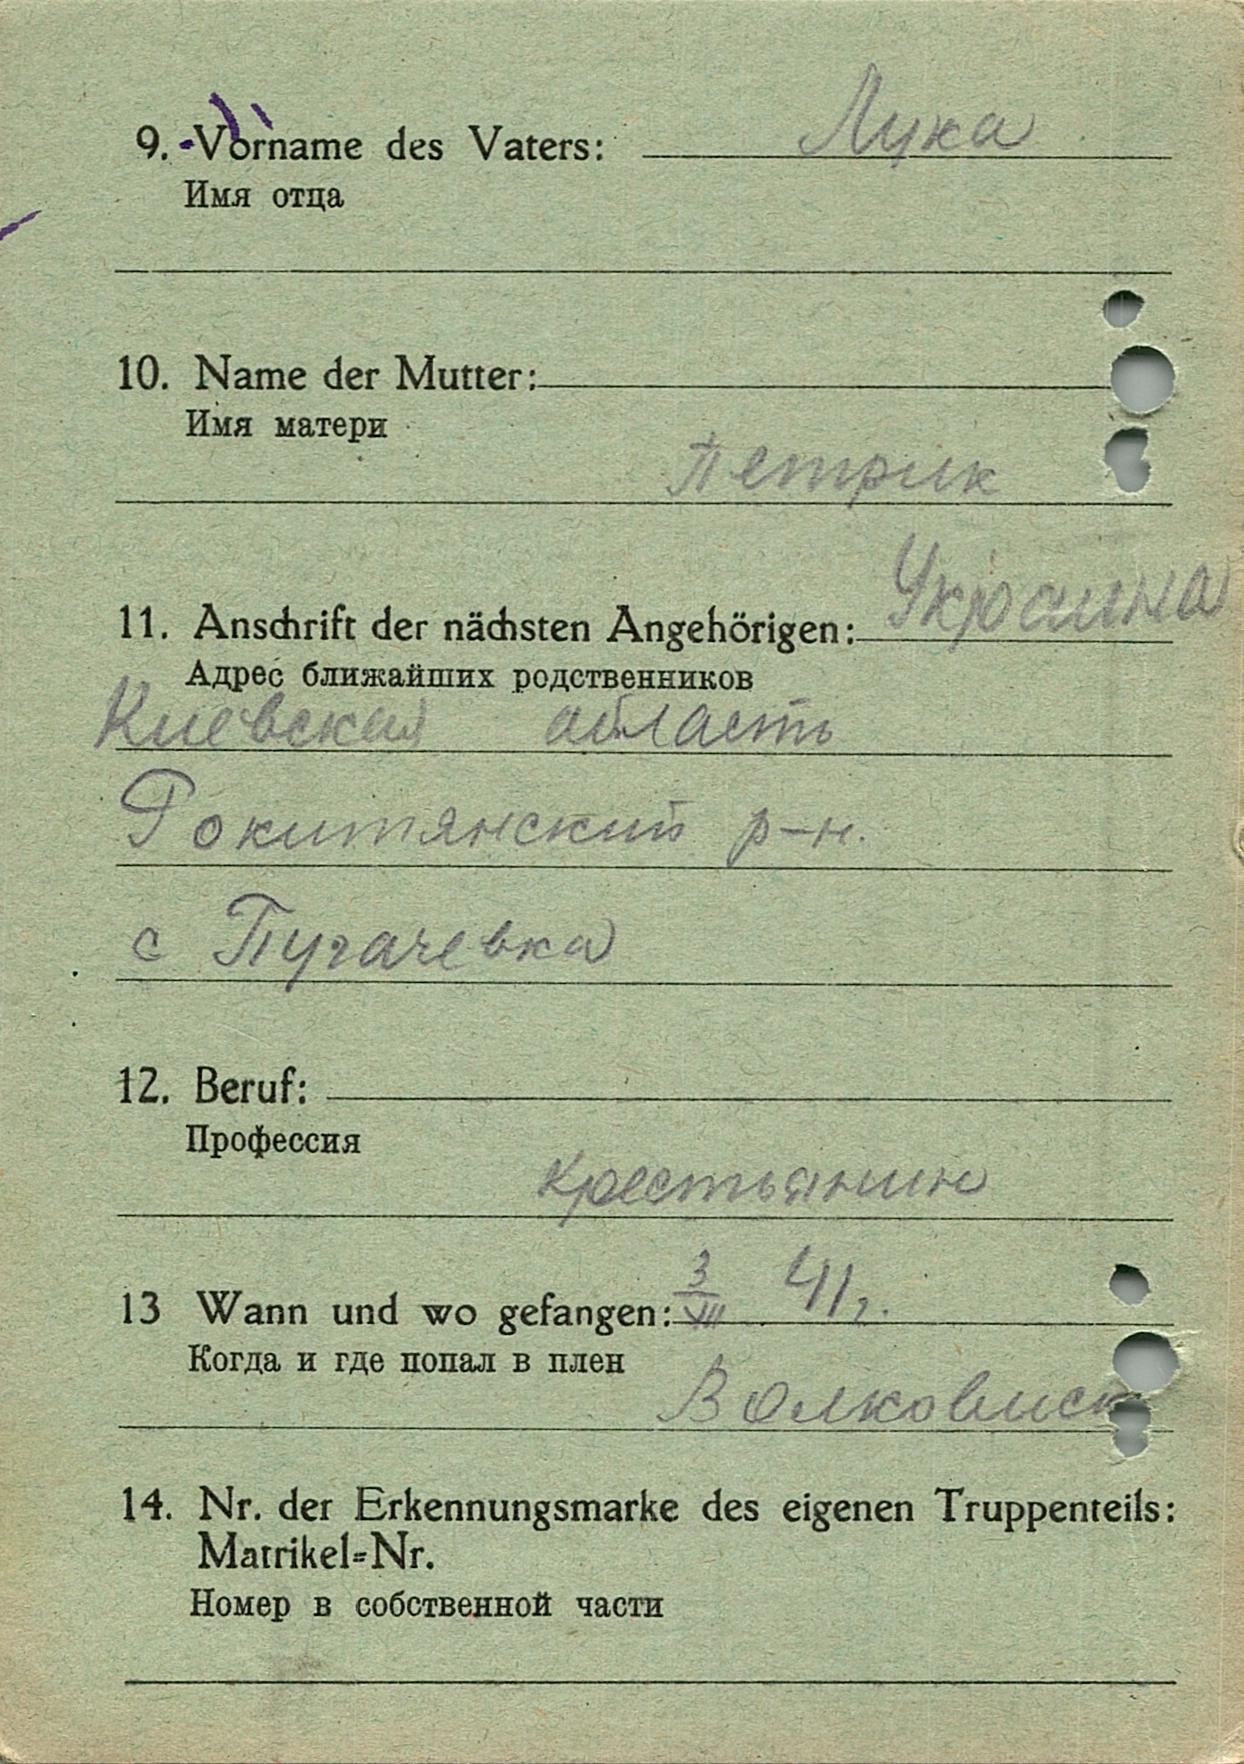 9. Vorname des Vaters: Лука
Имя отца
10. Name der Mutter:
Имя матери
Петрик
11. Anschrift der nächsten Angehörigen: Украина
Адрес ближайших родственников
Киевская область
Рокитянский р-н.
с Пугачевка
12. Beruf:
Профессия
крестьянин
13 Wann und wo gefangen: 3/VII 41г.
Когда и где попал в плен
Волковиск
14. Nr. der Erkennungsmarke des eigenen Truppenteils:
Matrikel=Nr.
Номер в собственной части